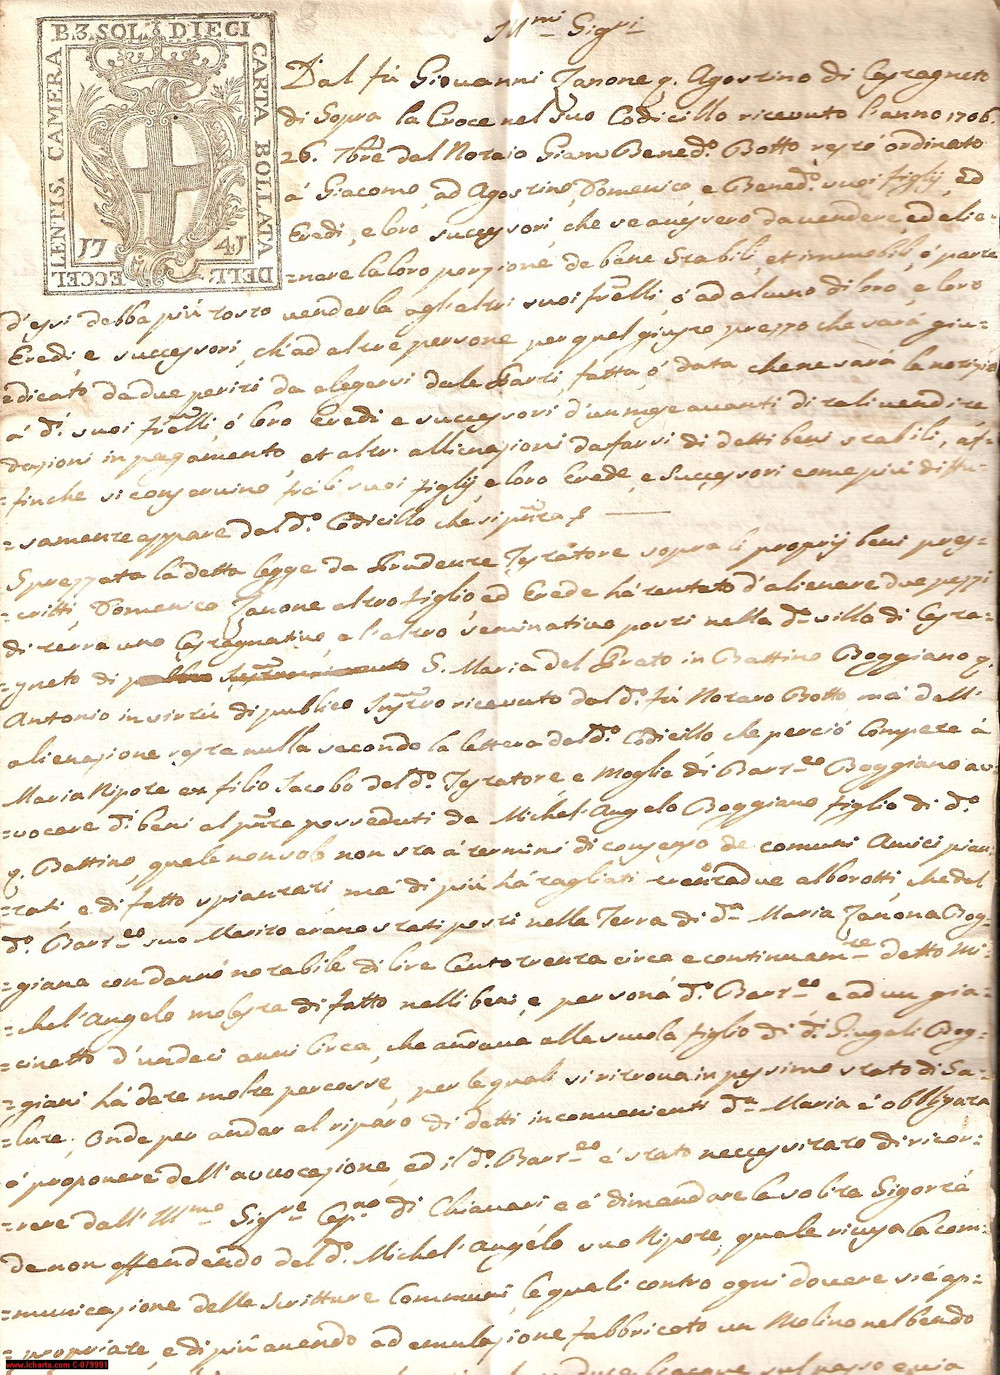 Ill.mi Sig.ri
B.3 SOL. DIECI
CARTA BOLLATA
DELL' ECCEL
LENTIS. CAMERA
17 41
Dal fù Giovanni Zanone q. Agostino di Castagneto
di Sopra la Croce nel suo Codicillo ricevuto l'anno 1706
26. 7bre dal Notaio Giam Bened.o Botto restò ordinato
à Giacomo, ad Agostino, Domenico, e Bened.o suoi figlij, ed
Eredi, e loro successori, che se avessero da vendere, ed alie=
=nare la loro porzione de beni stabili, et immobili ò parte
d'essi debba più tosto venderla agl'altri suoi fr̃elli, ò ad alcuno di loro, e loro
Eredi, e successori, ch'ad altre persone per quel giusto prezzo che sarà giu=
=dicato da due periti da elegersi dale Parti, fatta, ò data che ne sarà la notizia
à d.i suoi fr̃elli, ò loro Eredi e successori d'un mese avanti di tali vendite
dazioni in pagamento, et altri allienazioni da farsi di detti beni stabili, af=
=finche si conservino frà li suoi figlij, e loro Erede, e successori come più diffu=
=samente appare dal d.o Codicillo che si pñta
Sprezzata la detta legge da Prudente Testatore sopra li proprij beni pres=
=critti, Domenico Zanone altro figlio, ed Erede hà tentato d'alienare due pezzi
di terra uno Castagnativo, e l'altro seminativo posti nella d.a villa di Casta=
=gneto di S. Maria del Prato in Battino Boggiano q.
Antonio in virtù di publico Instr̃o ricevuto dal d.o fù Notaro Botto mà dell'
alienazione resta nulla secondo la lettera del d.o Codicillo che perciò Compete à
Maria Nipote ex filio Jacobo del d.o Testatore e Moglie di Bart.eo Boggiano av=
=vocare d.i beni al pñte posseduti da Michel'Angelo Boggiano figlio di d.o
q. Battino, quale non solo non sta à termini di consenso de comuni Amici pian=
=tati, e di fatto spiantati mà di più hà tagliati trentadue alborotti che dal
d.o Bart.eo suo Marito erano stati posti nella Terra di d.a Maria Zanona Bog=
=giana con danno notabile di lire Centotrenta circa e continuam.te detto Mi=
=chel'Angelo molesta di fatto nelli beni, e persona d.o Bart.eo e ad un
=cinetto d'undeci anni Circa, che andava alla scuola, figlio di d.i Giugali Bog=
=giani hà date molte percosse, per le quali si ritrova in pessimo stato di Sa=
=lute; Onde per andar al riparo di detti inconvenienti d.a Maria è obbligata
à proponere dell'avvocazione, ed il d.o Bart.eo è stato neccessitato di ricor=
=rere dall'Ill.mo Sig.re Cap.no di Chiavari e à dimandare la solita Sigortà
de non offendendo del d.o Michel'Angelo suo Nipote, quale ricusa la com=
=municazione delle scritture Communi, le quali contro ogni dovere si è ap=
=propriate, e di più avendo ad emulazione fabbricato un Molino nel bendo
www.icharta.com C-079991